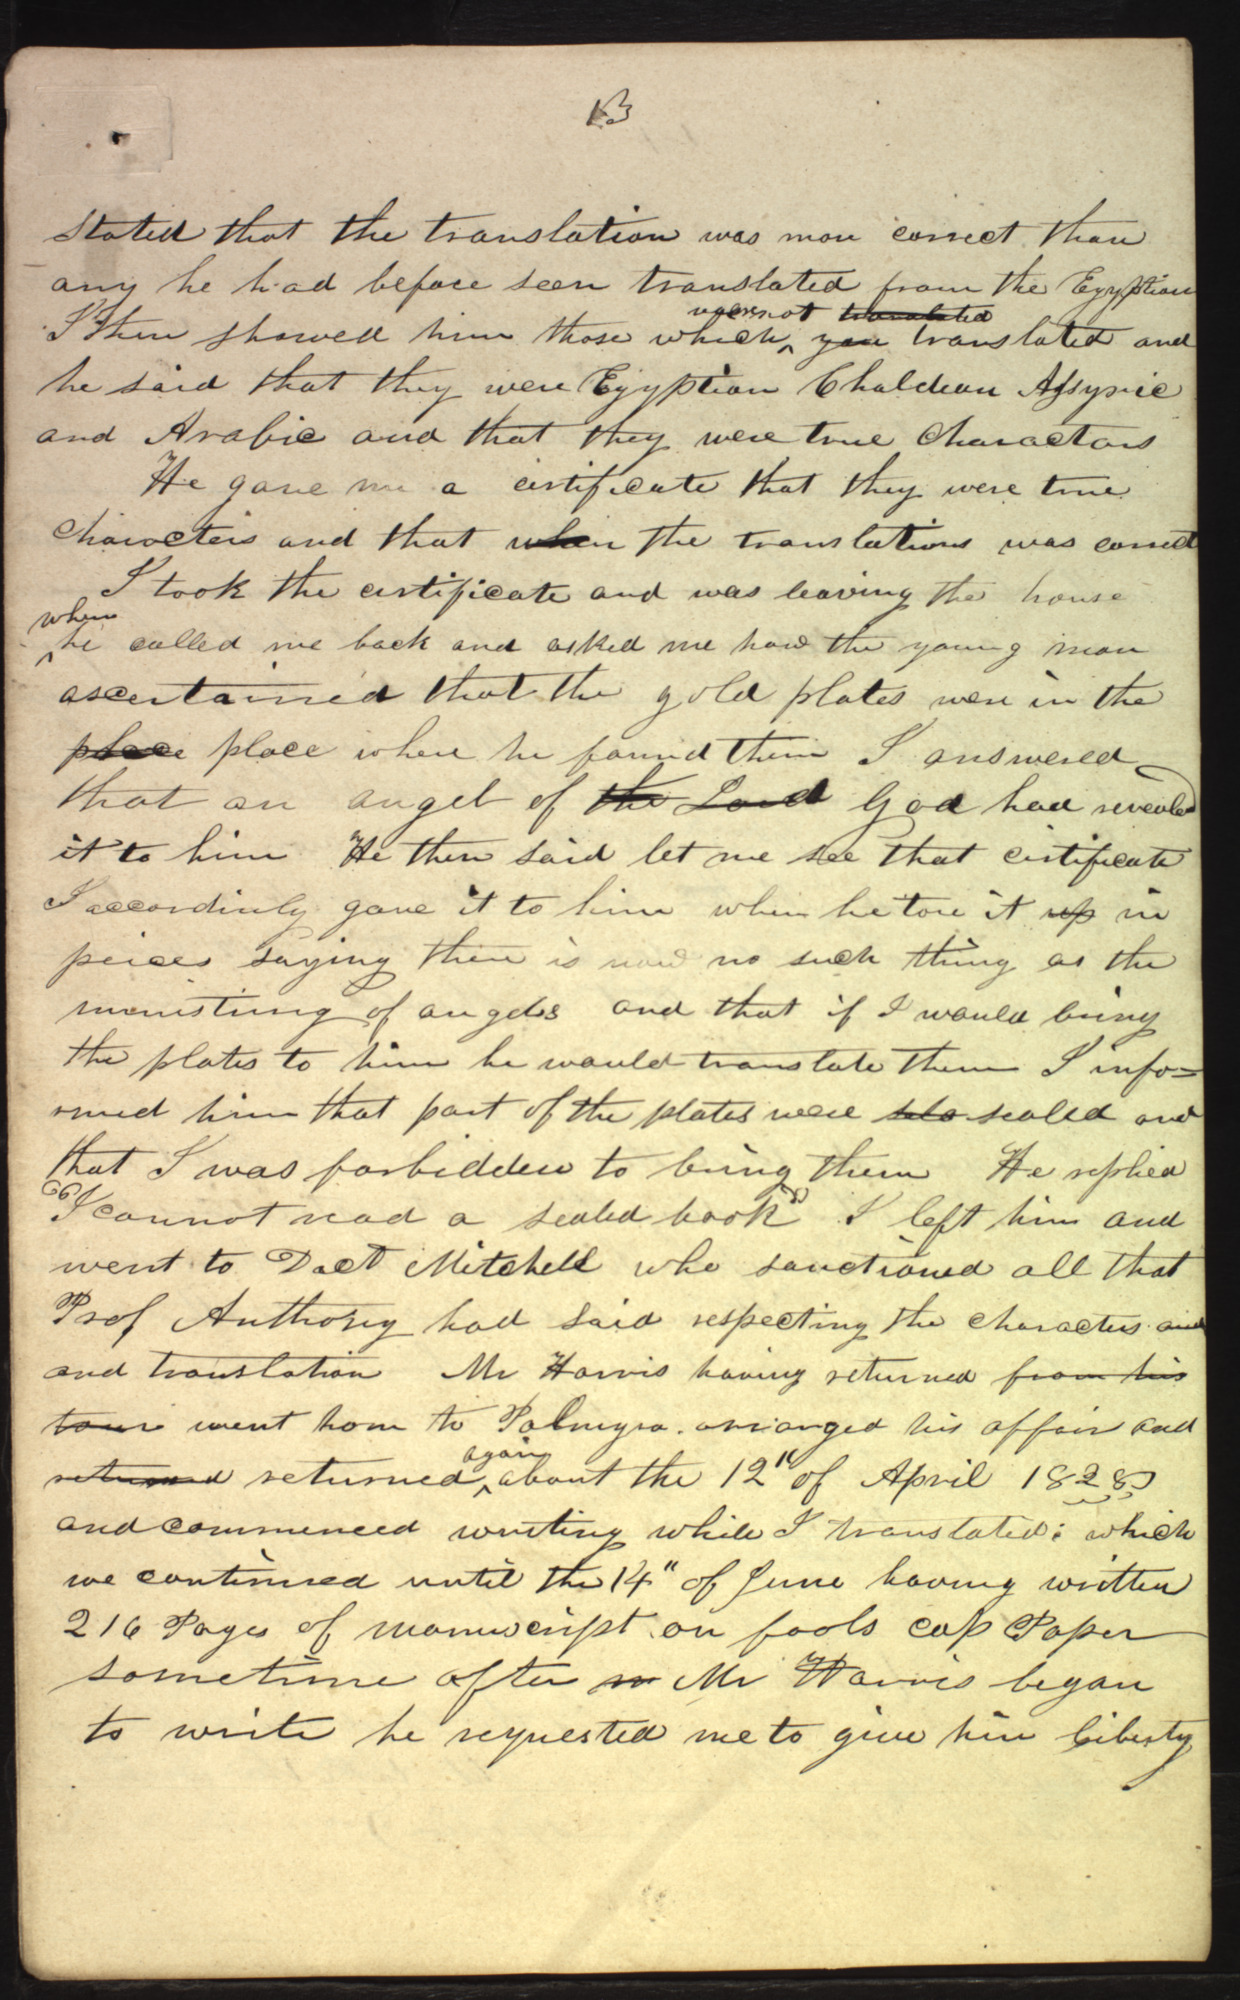 13
stated that the translation was more correct than
any he had before seen translated from the Egyptian
were not translated
I then showed him those which ^ yet translated and
he said that they were Egyptian Chaldean Assyric
and Arabic and that they were true Charactars
He gave me a certificate that they were true
characters and that when the translations was correct
I took the certificate and was leaving the house
when
^ he called me back and asked me how the young man
ascertained that the gold plates were in the
place place where he found them I answered
that an angel of the Lord God had revealed
it to him He then said let me see that certificate
I accordinly gave it to him when he tore it up in
peices saying there is now no such thing as the
ministring of angels and that if I would bring
the plates to him he would translate them I info=
rmed him that part of the plates were sea sealed and
that I was forbidden to bring them He replied
"I cannot read a sealed book" I left him and
went to Doct Mitchell who sanctioned all that
Prof Anthony had said respecting the characters and
and translation Mr Harris having returned from his
tour went hom to Palmyra. arranged his affair and
again
returned returned ^ about the 12" of April 1828
and commenced writing while I translated: which
we continued until the 14" of June having written
216 Pages of manuscript on fools cap Paper
sometime after m Mr Harris began
to write he requested me to give him liberty